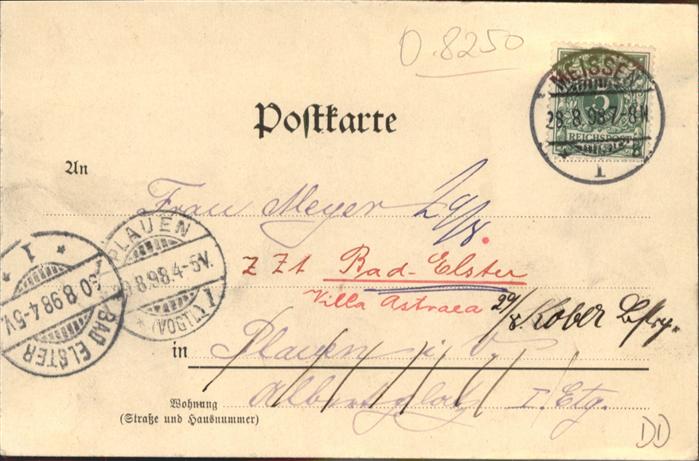 O.8250
MEISSEN
28.8.98.7-8N.
1
5
REICHSPOST
Postkarte
An
Frau Meyer 29/8.
z Zt Bad-Elster
Villa Astraea
29/8 Kober
in Plauen i. V
Albertplatz I. Etg.
Wohnung
(Straße und Hausnummer)
PLAUEN
8.98.4-5V.
(VOGTL.)
1
BAD ELSTER
30.8.98.4-5V.
1
DD